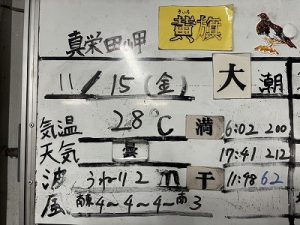 真栄田岬
きいろ
黄旗
11/15(金) 大潮
気温 28℃ 満 6:02 200
天気 曇 17:41 212
波 うねり2m 干 11:48 62
風 南東4~4~4~南3